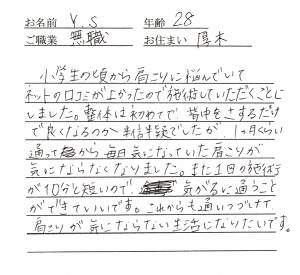 お名前 Y.S 年齢 28
ご職業 無職 お住まい 厚木
小学生の頃から肩こりに悩んでいて
ネットの口コミが上がったので施術していただくことに
しました。整体は初めてで背中をさするだけ
で良くなるのか半信半疑でしたが、1ヶ月くらい
通ってから毎日気になっていた肩こりが
気にならなくなりました。また1回の施術
が10分と短いので気がるに通うこと
ができていいです。これからも通いつづけて
肩こりが気にならない生活になりたいです。